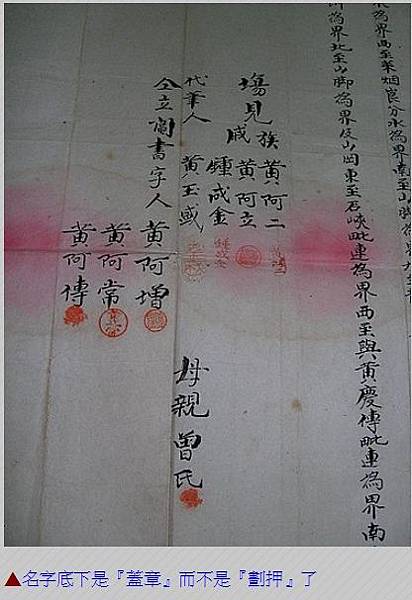 為界西至茱烟崀分水為界南至山脚為界
為界北至山脚為界及山岡東至石峽毗連為界西至與黃慶傳毗連為界南
塲見
族 黃阿二
戚 黃阿立
鍾成金
代筆人 黃玉盛
仝立鬮書字人 黃阿增
黃阿常
黃阿傳
母親曾氏
▲名字底下是『蓋章』而不是『劃押』了